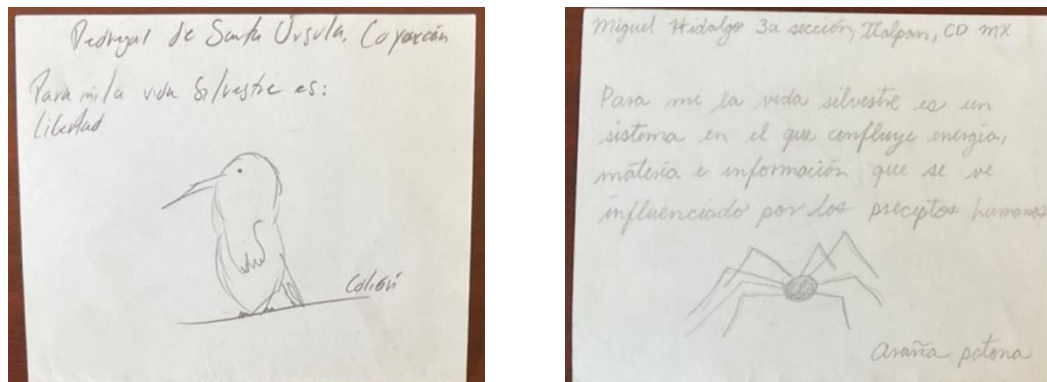 Pedregal de Santa Úrsula, Coyoacán
Para mi la vida Silvestre es:
Libertad
Colibrí
Miguel Hidalgo 3a sección, Tlalpan, CD MX
Para mi la vida silvestre es un
sistema en el que confluye energía,
matéria e información que se ve
influenciado por los preceptos humanos
Araña patona